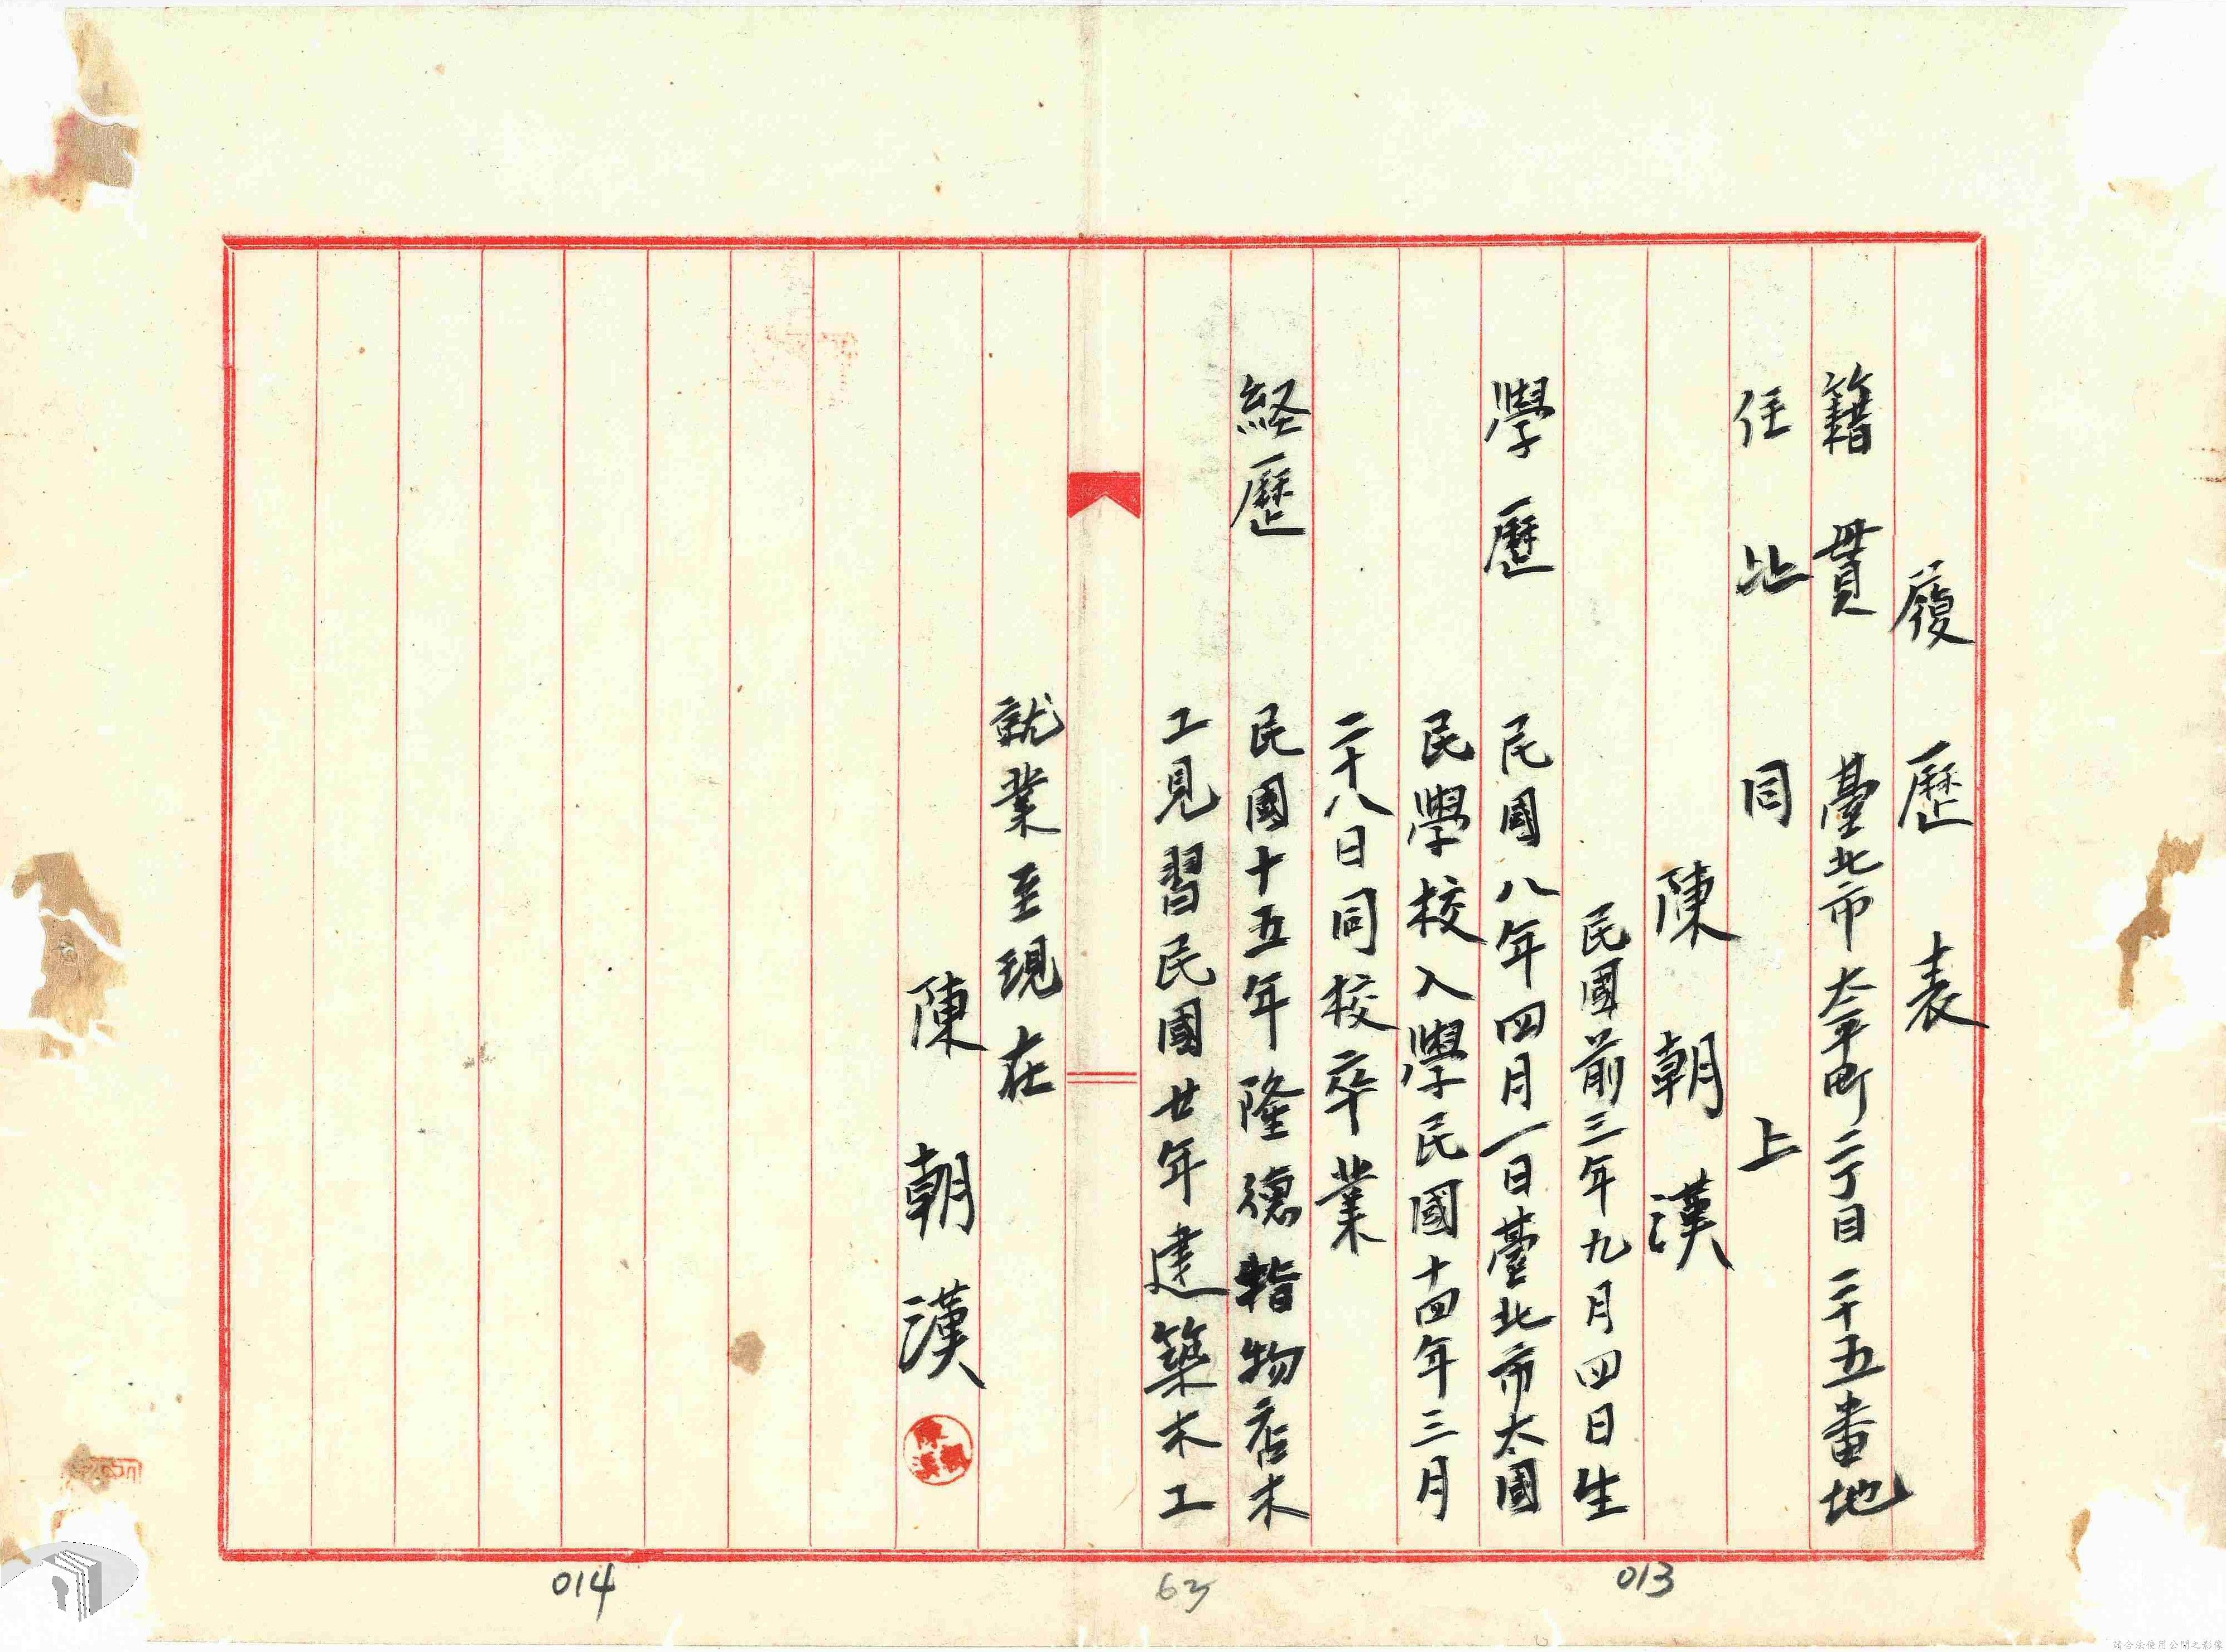 履歷表
籍貫 臺北市太平町二丁目二十五番地
住址 同上
陳朝漢
民國前三年九月四日生
學歷 民國八年四月一日臺北市太國
民學校入學民國十四年三月
二十八日同校卒業
経歷 民國十五年隆德指物店木
工見習民國廿年建築木工
就業至現在
陳朝漢
陳朝漢
014
63
013
請合法使用公開之影像